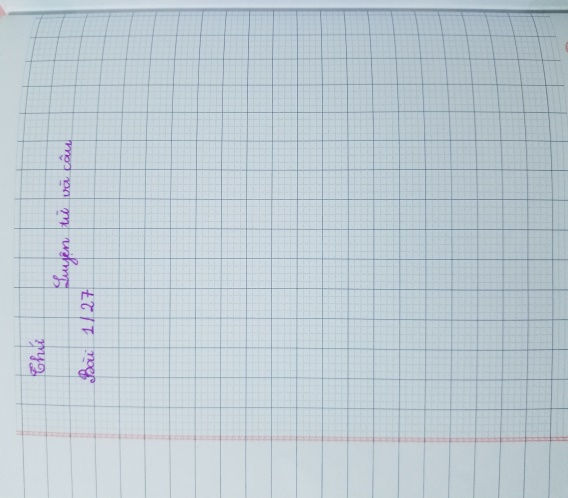 Thứ
Luyện từ và câu
Bài 1/27